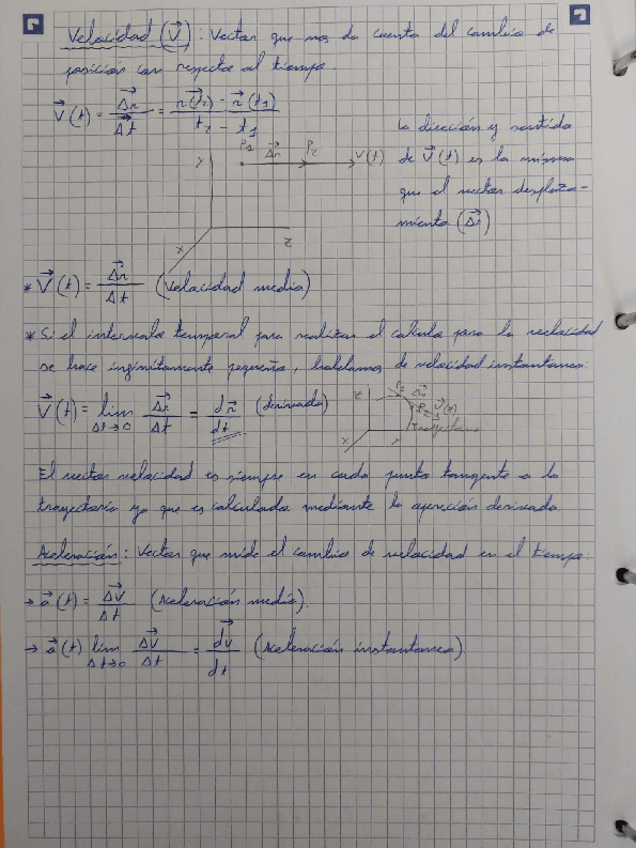 Velocidad (V⃗): Vector que nos da cuenta del cambio de
posición con respecto al tiempo.
V⃗(t) = Δr⃗ / Δt⃗ = r(t⃗₂) - r⃗(t₁) / t₂ - t₁
La dirección y sentido
de V⃗(t) es la misma
que el vector desplaza-
miento (Δr⃗)
Y P₁ Δr⃗ P₂ V(t)
X Z
* V⃗(t) = Δr⃗ / Δt (Velocidad media)
* Si el intervalo temporal para realizar el cálculo para la velocidad
se hace infinitamente pequeño, hablamos de velocidad instantanea:
V⃗(t) = lim Δt→0 Δr⃗ / Δt = dr⃗ / dt (derivada)
Z P₁ Δr⃗ P₂ V⃗(t)
trayectoria
X Y
El vector velocidad es siempre en cada punto tangente a la
trayectoria ya que es calculada mediante la operación derivada.
Aceleración: Vector que mide el cambio de velocidad en el tiempo:
→ a⃗(t) = ΔV⃗ / Δt (Aceleración media).
→ a⃗(t) lim Δt→0 ΔV⃗ / Δt = dv⃗ / dt (Aceleración instantanea)